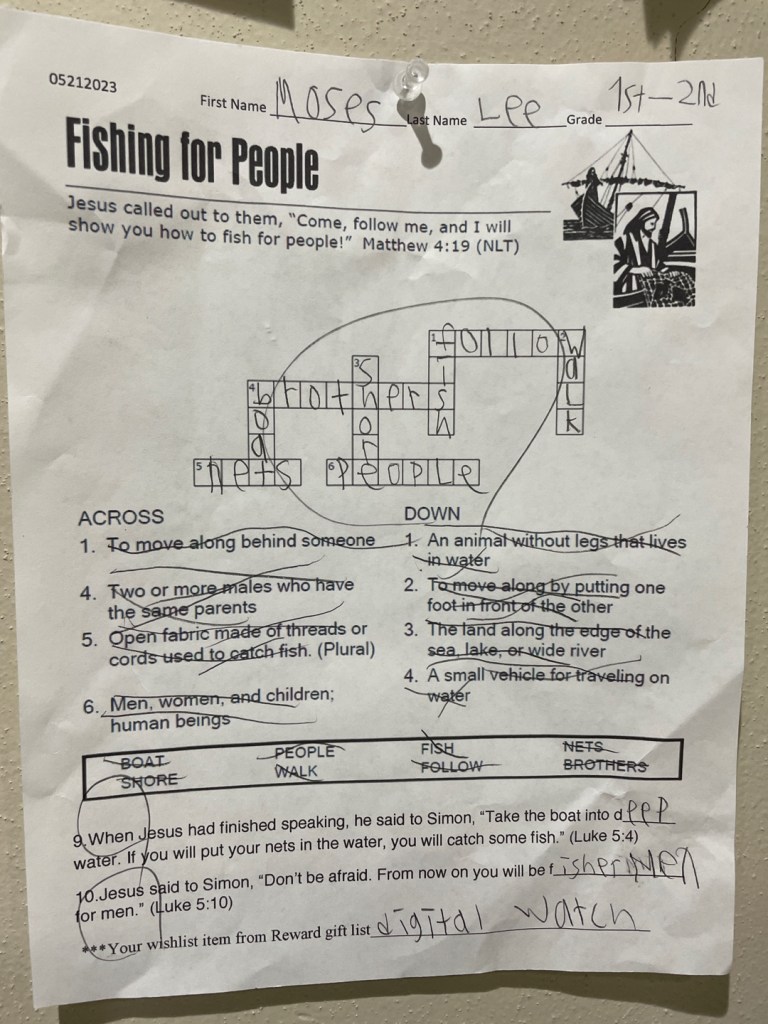 05212023
First Name Moses Last Name Lee Grade 1st-2nd
Fishing for People
Jesus called out to them, “Come, follow me, and I will
show you how to fish for people!” Matthew 4:19 (NLT)
1 follow 2
walk
fish
3 shore
4 brothers
boat
5 nets 6 PEOPLE
ACROSS
1. To move along behind someone
4. Two or more males who have
the same parents
5. Open fabric made of threads or
cords used to catch fish. (Plural)
6. Men, women, and children;
human beings
DOWN
1. An animal without legs that lives
in water
2. To move along by putting one
foot in front of the other
3. The land along the edge of the
sea, lake, or wide river
4. A small vehicle for traveling on
water
BOAT PEOPLE FISH NETS
SHORE WALK FOLLOW BROTHERS
9. When Jesus had finished speaking, he said to Simon, “Take the boat into deep
water. If you will put your nets in the water, you will catch some fish.” (Luke 5:4)
10. Jesus said to Simon, “Don’t be afraid. From now on you will be fishermen
for men.” (Luke 5:10)
***Your wishlist item from Reward gift list digital watch